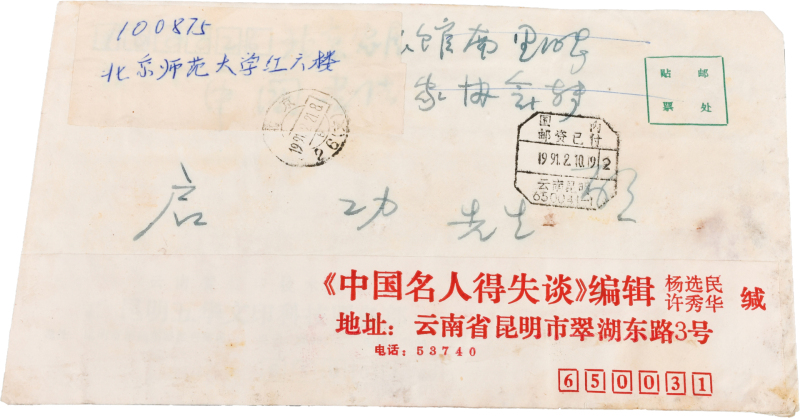 100875
北京师范大学红六楼
馆南里
家协会
贴 邮
票 处
北京
1991.2.
国 内
邮资已付
1991.2.10.19
2
云南昆明
650041
启 功 先生
《中国名人得失谈》编辑 杨选民 许秀华 缄
地址：云南省昆明市翠湖东路3号
电话：53740
650031